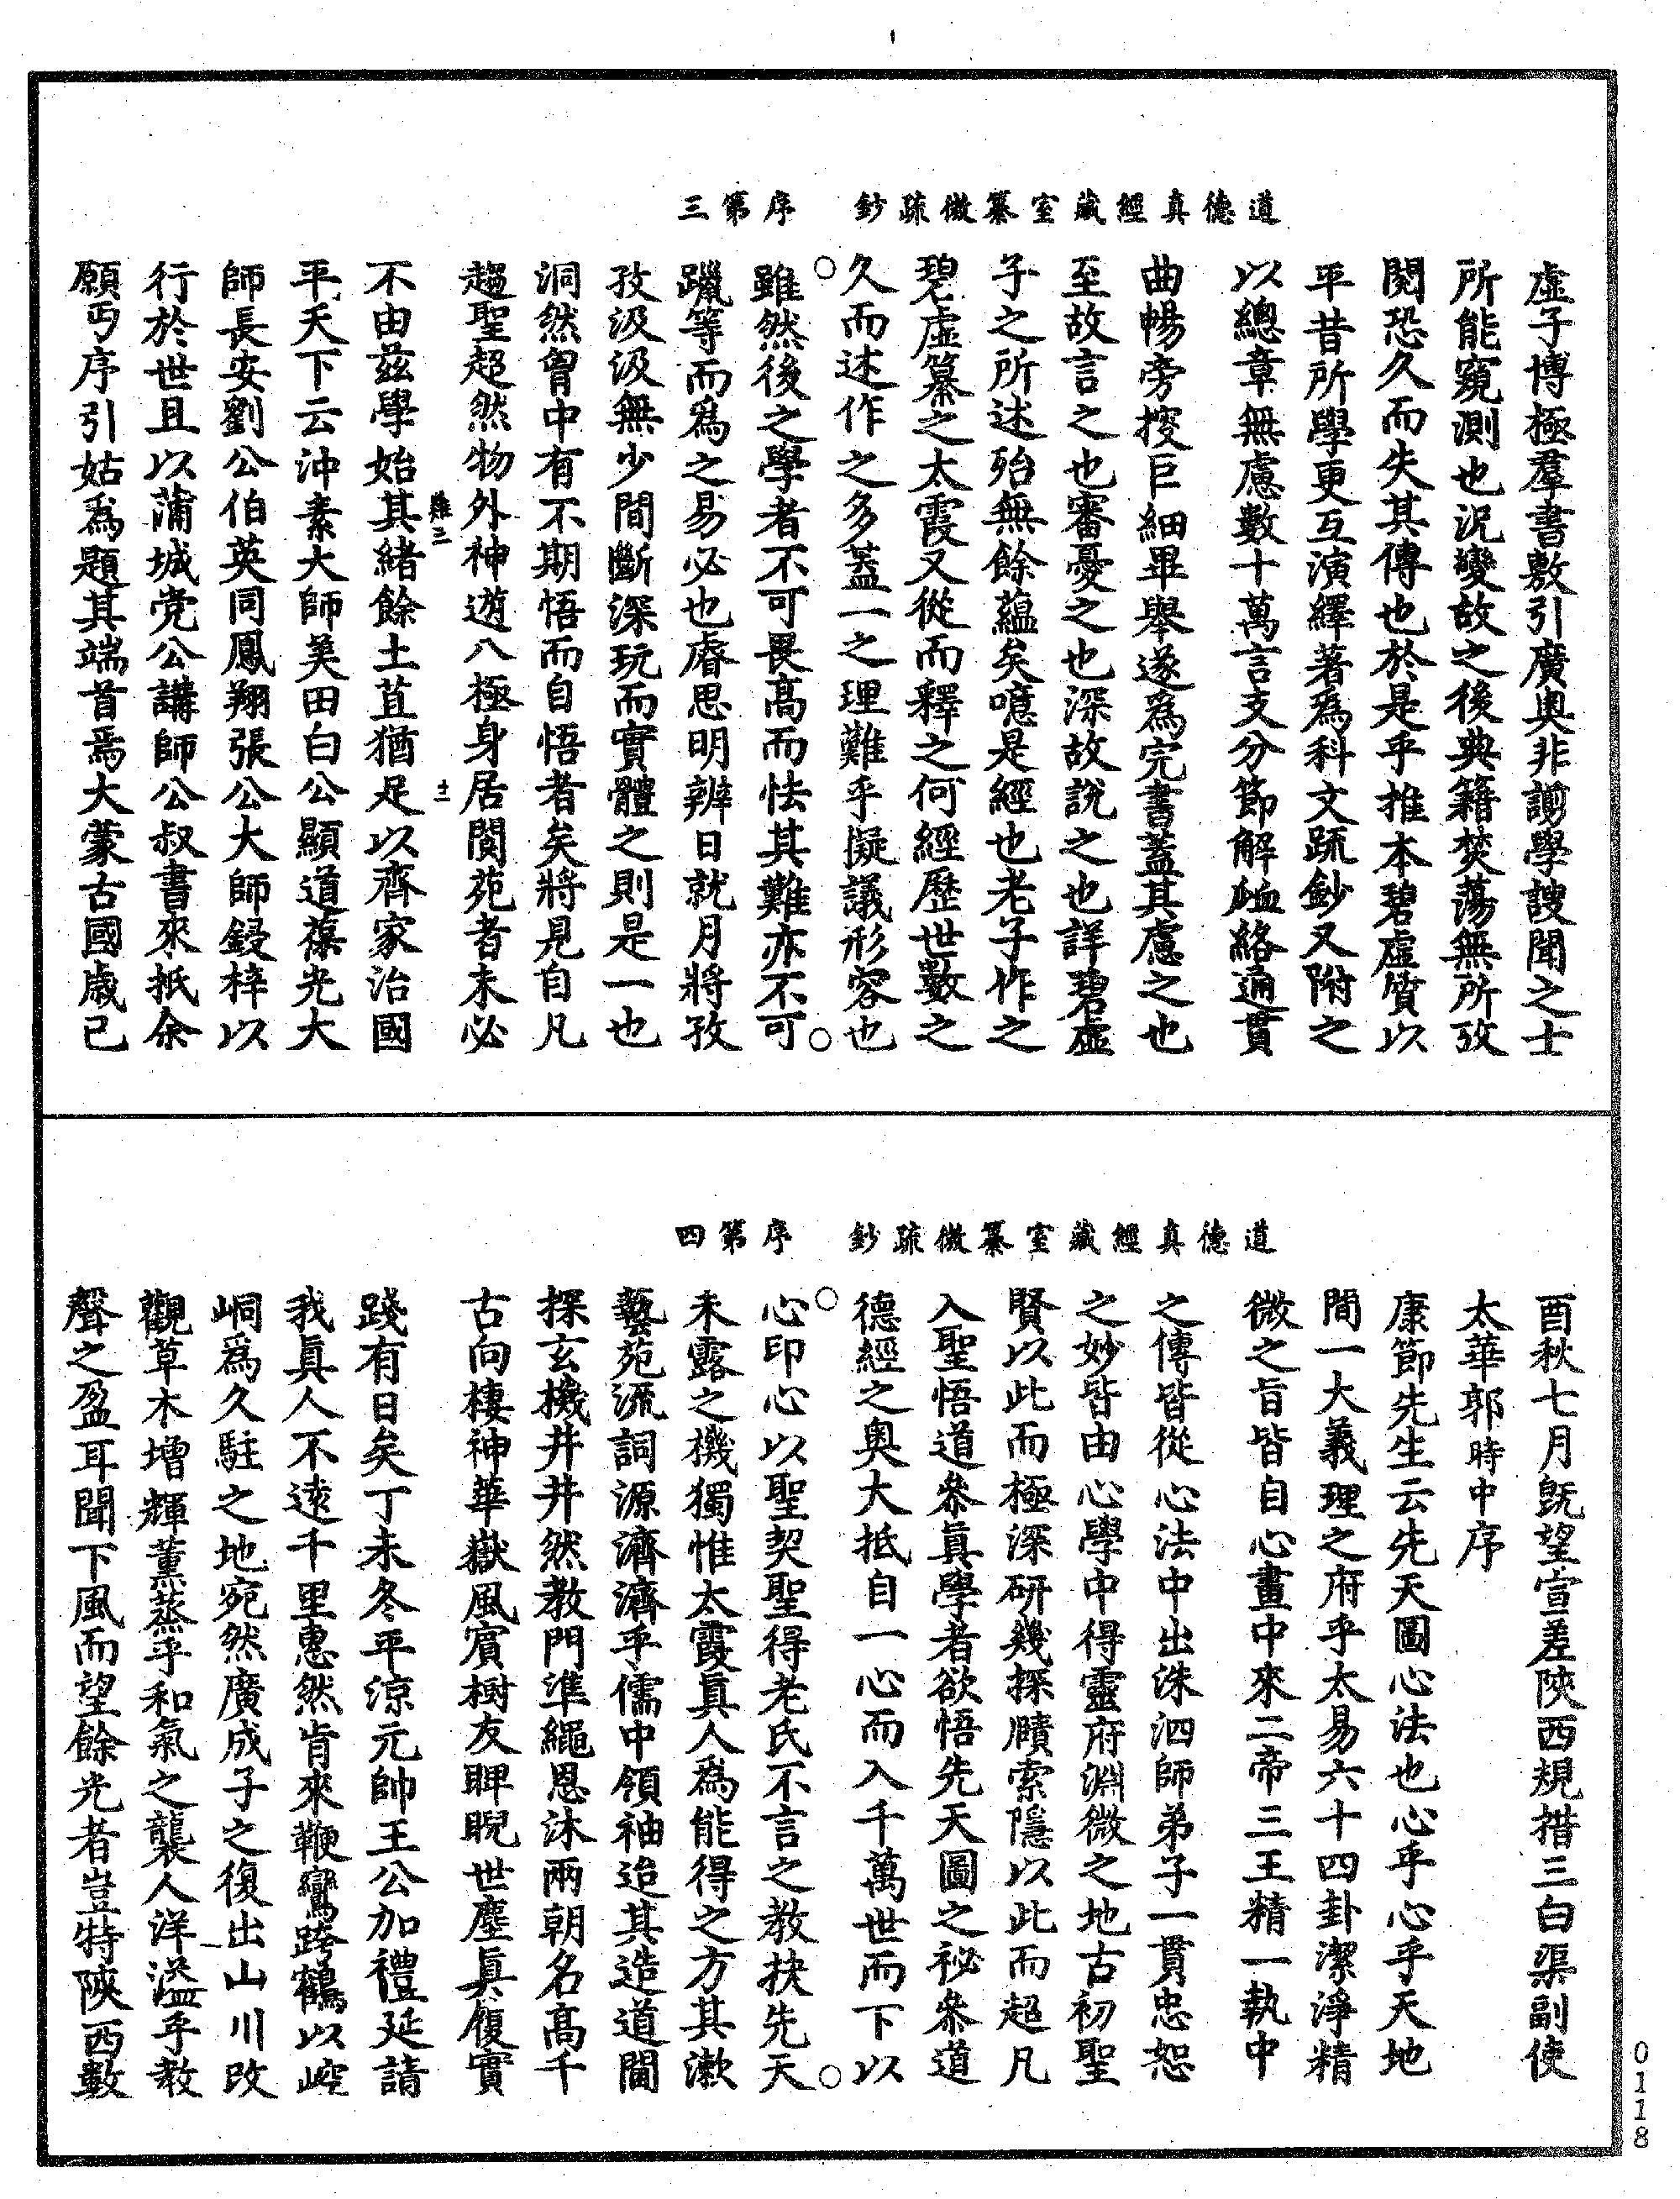 道德真經藏室纂微疏鈔　序第三
虛子博極羣書敷引廣奧非謭學謏聞之士
所能窺測也況變故之後典籍焚蕩無所攷
閱恐久而失其傳也於是乎推本碧虛質以
平昔所學更互演繹著為科文疏鈔又附之
以總章無慮數十萬言支分節解䘐絡通貫
曲暢旁搜巨細畢舉遂為完書蓋其慮之也
至故言之也審憂之也深故說之也詳碧虛
子之所述殆無餘蘊矣噫是經也老子作之
碧虛纂之太霞又從而釋之何經歷世數之
久而述作之多蓋一之理難乎擬議形容也
雖然後之學者不可畏高而怯其難亦不可
躐等而為之易必也睿思明辨日就月將孜
孜汲汲無少間斷深玩而實體之則是一也
洞然胷中有不期悟而自悟者矣將見自凡
趨聖超然物外神遊八極身居閬苑者未必
難三
十二
不由茲學始其緒餘土苴猶足以齊家治國
平天下云沖素大師美田白公顯道葆光大
師長安劉公伯英同鳳翔張公大師鋟梓以
行於世且以蒲城党公講師公叔書來抵余
願丐序引姑為題其端首焉大蒙古國歲己
道德真經藏室纂微疏鈔　序第四
酉秋七月旣望宣差陝西規措三白渠副使
太華郭時中序
康節先生云先天圖心法也心乎心乎天地
間一大義理之府乎太易六十四卦潔淨精
微之旨皆自心畫中來二帝三王精一執中
之傳皆從心法中出洙泗師弟子一貫忠恕
之妙皆由心學中得靈府淵微之地古初聖
賢以此而極深研幾探賾索隱以此而超凡
入聖悟道叅眞學者欲悟先天圖之祕叅道
德經之奧大抵自一心而入千萬世而下以
心印心以聖契聖得老氏不言之教抉先天
未露之機獨惟太霞眞人為能得之方其漱
藝苑流詞源濟濟乎儒中領袖迨其造道閫
探玄機井井然教門準繩恩沐兩朝名高千
古向棲神華嶽風賓樹友睥睨世塵眞履實
踐有日矣丁未冬平涼元帥王公加禮延請
我眞人不遠千里惠然肯來鞭鸞跨鶴以崆
峒為久駐之地宛然廣成子之復出山川改
觀草木增輝薰蒸乎和氣之襲人洋溢乎教
聲之盈耳聞下風而望餘光者豈特陝西數
0118